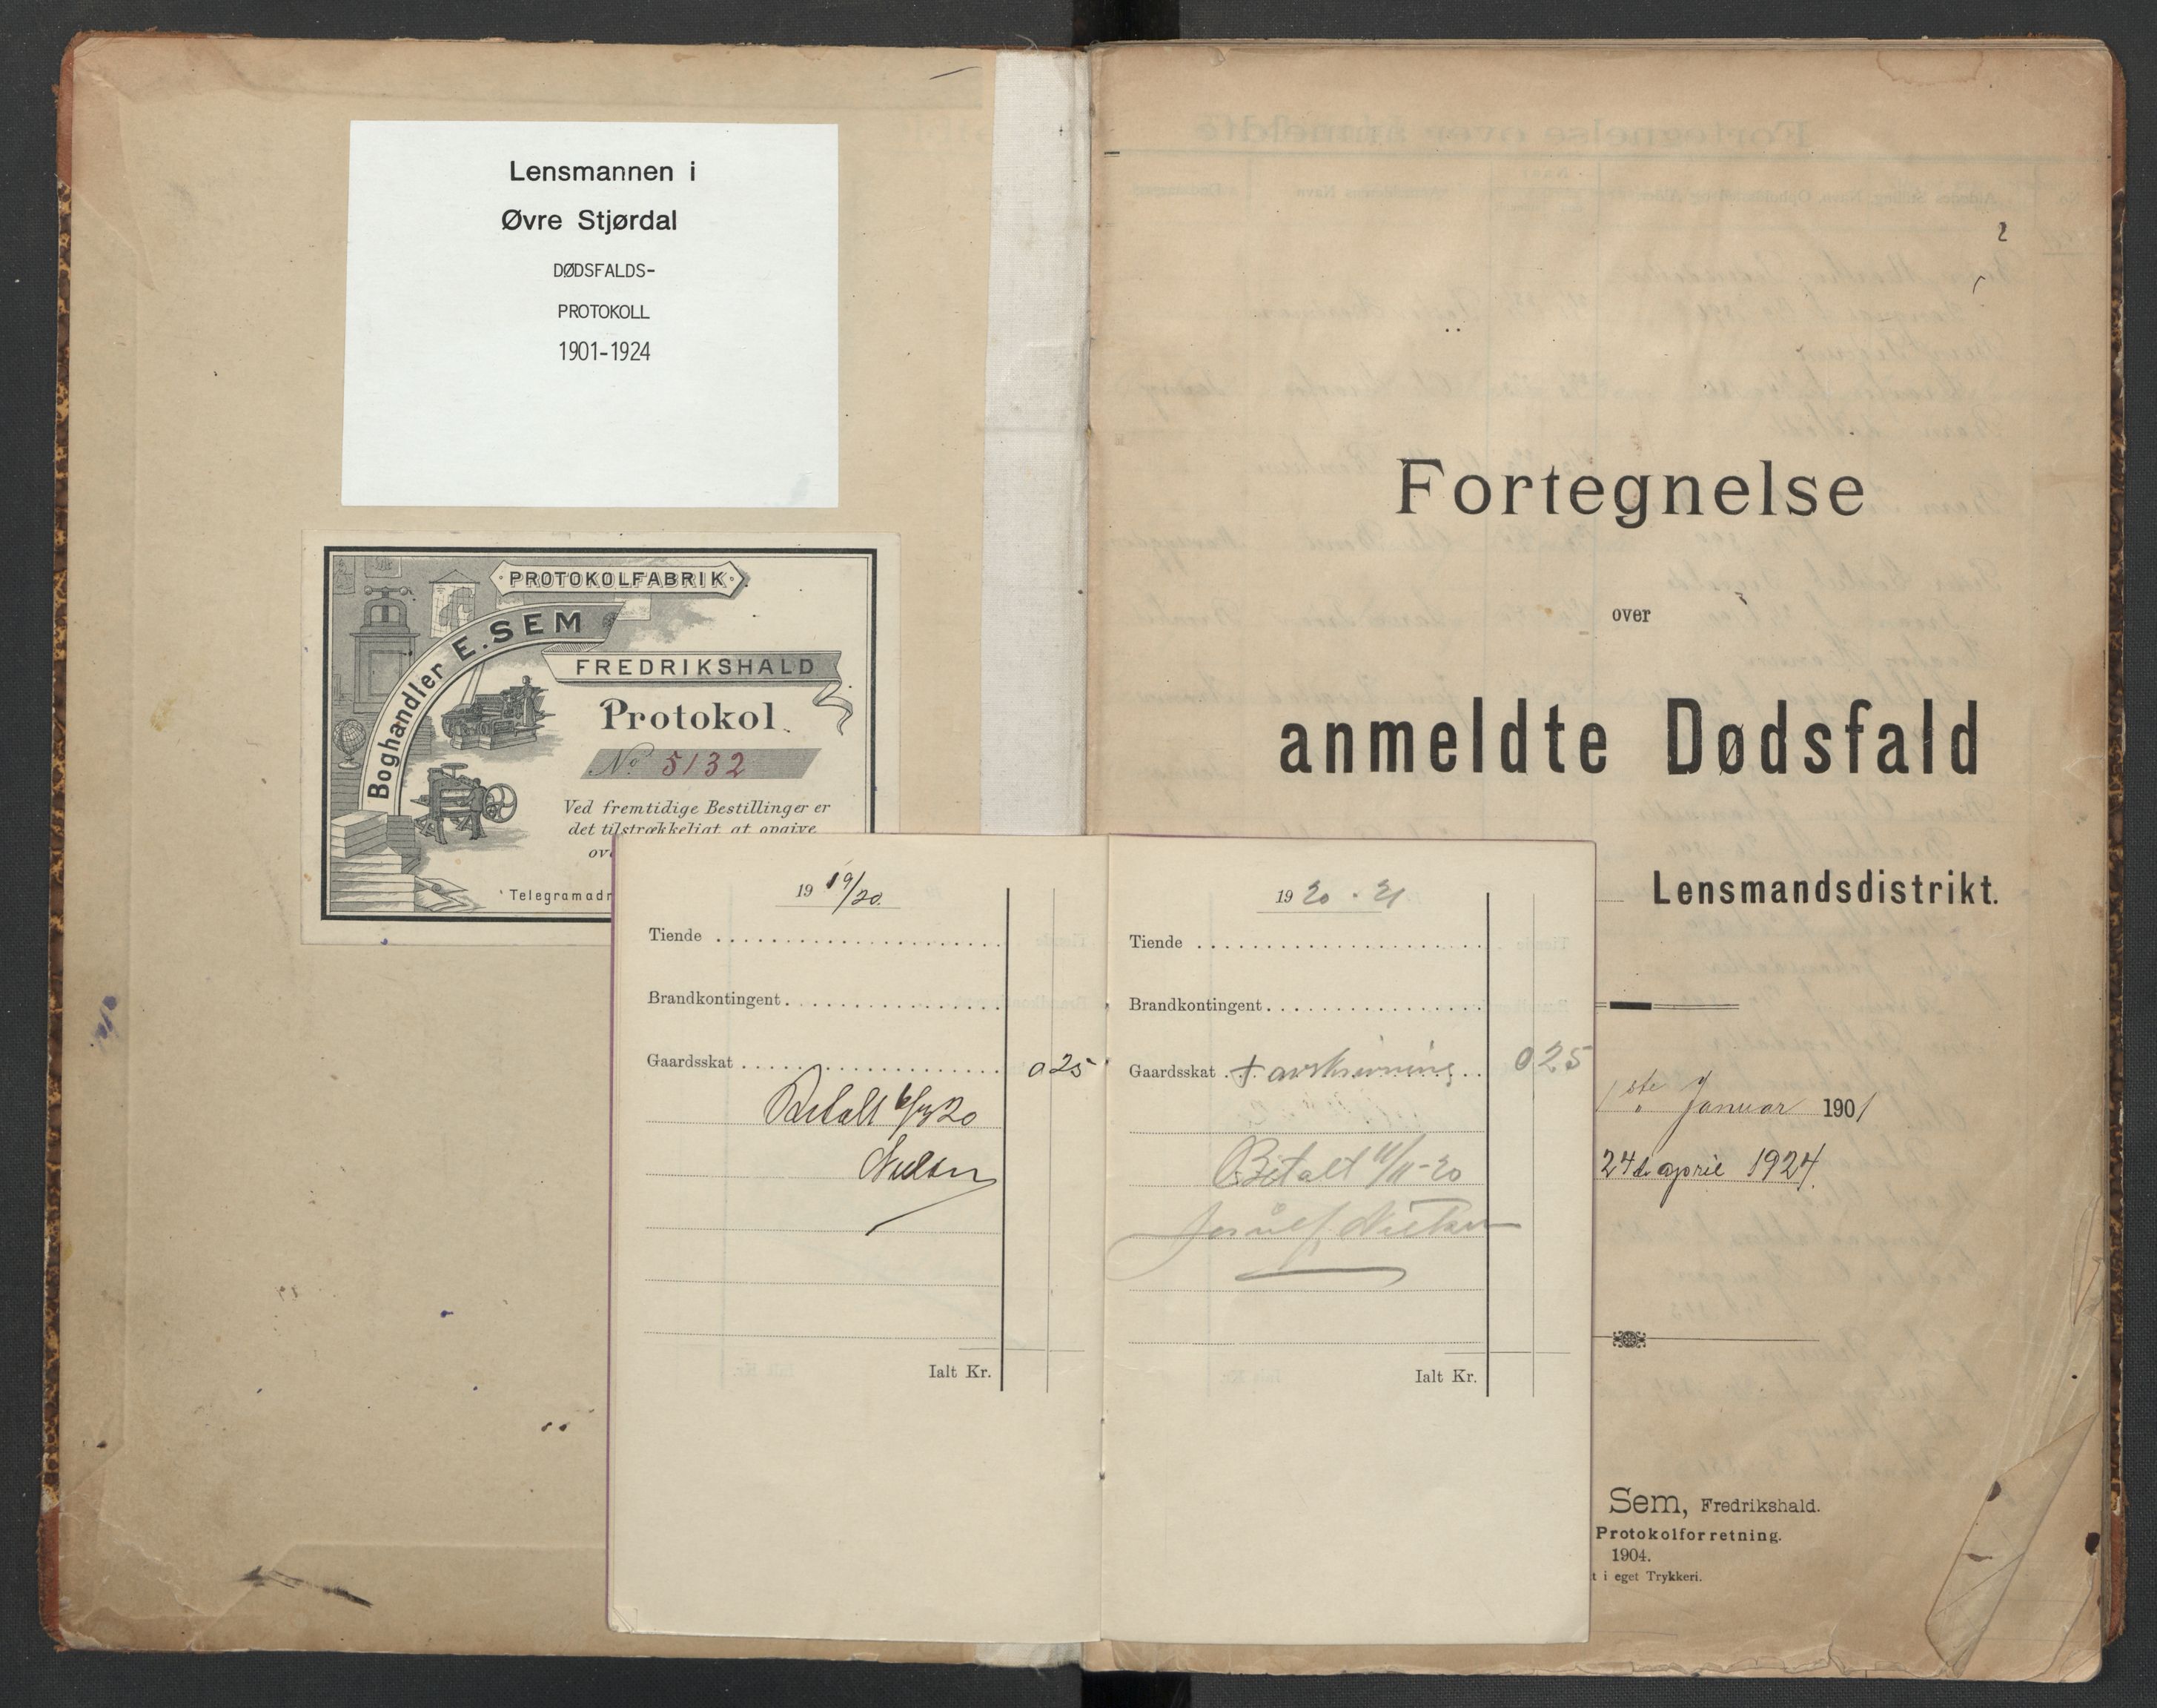 Lensmannen i
Øvre Stjørdal
DØDSFALDS-
PROTOKOLL
1901-1924
PROTOKOLFABRIK
Boghandler E. SEM
FREDRIKSHALD
Protokol
No 5132
Ved fremtidige Bestillinger er
det tilstrækkeligt at opgive
Telegramadr
1919/20.
Tiende
Brandkontingent
Gaardsskat 0 25
Betalt 20
Nielsen
Ialt Kr.
1920-21
Tiende
Brandkontingent
Gaardsskat + avskrivning 0 25
Betalt 11/11-20
Nielsen
Ialt Kr.
2
Fortegnelse
over
anmeldte Dødsfald
Lensmandsdistrikt.
1ste Januar 1901
24de april 1924.
Sem, Fredrikshald.
Protokolforretning.
1904.
t i eget Trykkeri.